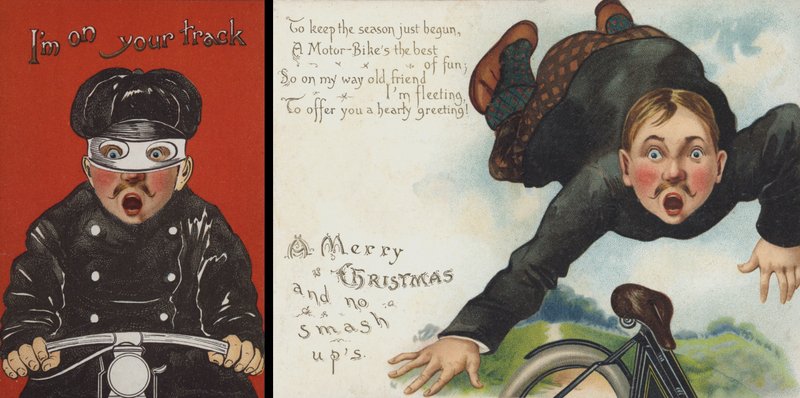 I'm on your track
To keep the season just begun,
A Motor-Bike's the best
of fun;
So on my way old friend
I'm fleeting,
To offer you a hearty greeting!
A Merry
CHRISTMAS
and no
smash
up's.